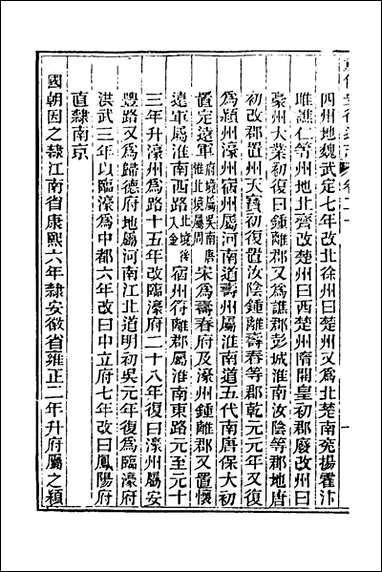 卷二十
四州地魏武定七年改北徐州曰楚州又為北楚南兗揚霍汴
睢譙仁等州地北齊改楚州曰西楚州隋開皇初郡廢改州曰
豪州大業初復曰鍾離郡又為譙郡彭城淮南汝陰等郡地唐
初改郡置州天寶初復置汝陰鍾離壽春等郡乾元元年又復
為潁州濠州宿州屬河南道壽州屬淮南道五代南唐保大初
置定遠軍府境屬吳南唐淮北境屬周宋為壽春府及濠州鍾離郡又置懷
遠軍屬淮南西路北境後入金宿州符離郡屬淮南東路元至元十
三年升濠州為路十五年改臨濠府二十八年復曰濠州屬安
豐路又為歸德府地屬河南江北道明初吳元年復為臨濠府
洪武三年以臨濠為中都六年改曰中立府七年改曰鳳陽府
直隸南京
國朝因之隸江南省康熙六年隸安徽省雍正二年升府屬之潁